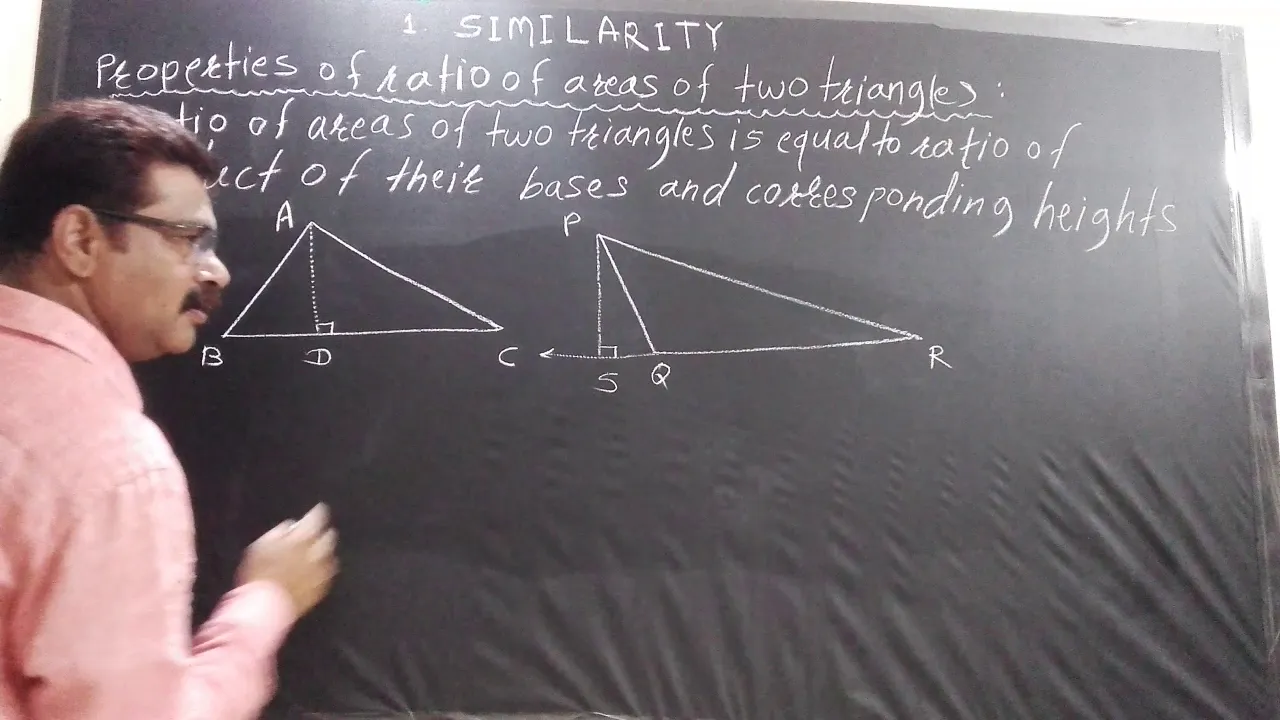 1. SIMILARITY
Properties of ratio of areas of two triangles:
of areas of two triangles is equal to ratio of
of their bases and corresponding heights
A P
B D C S Q R